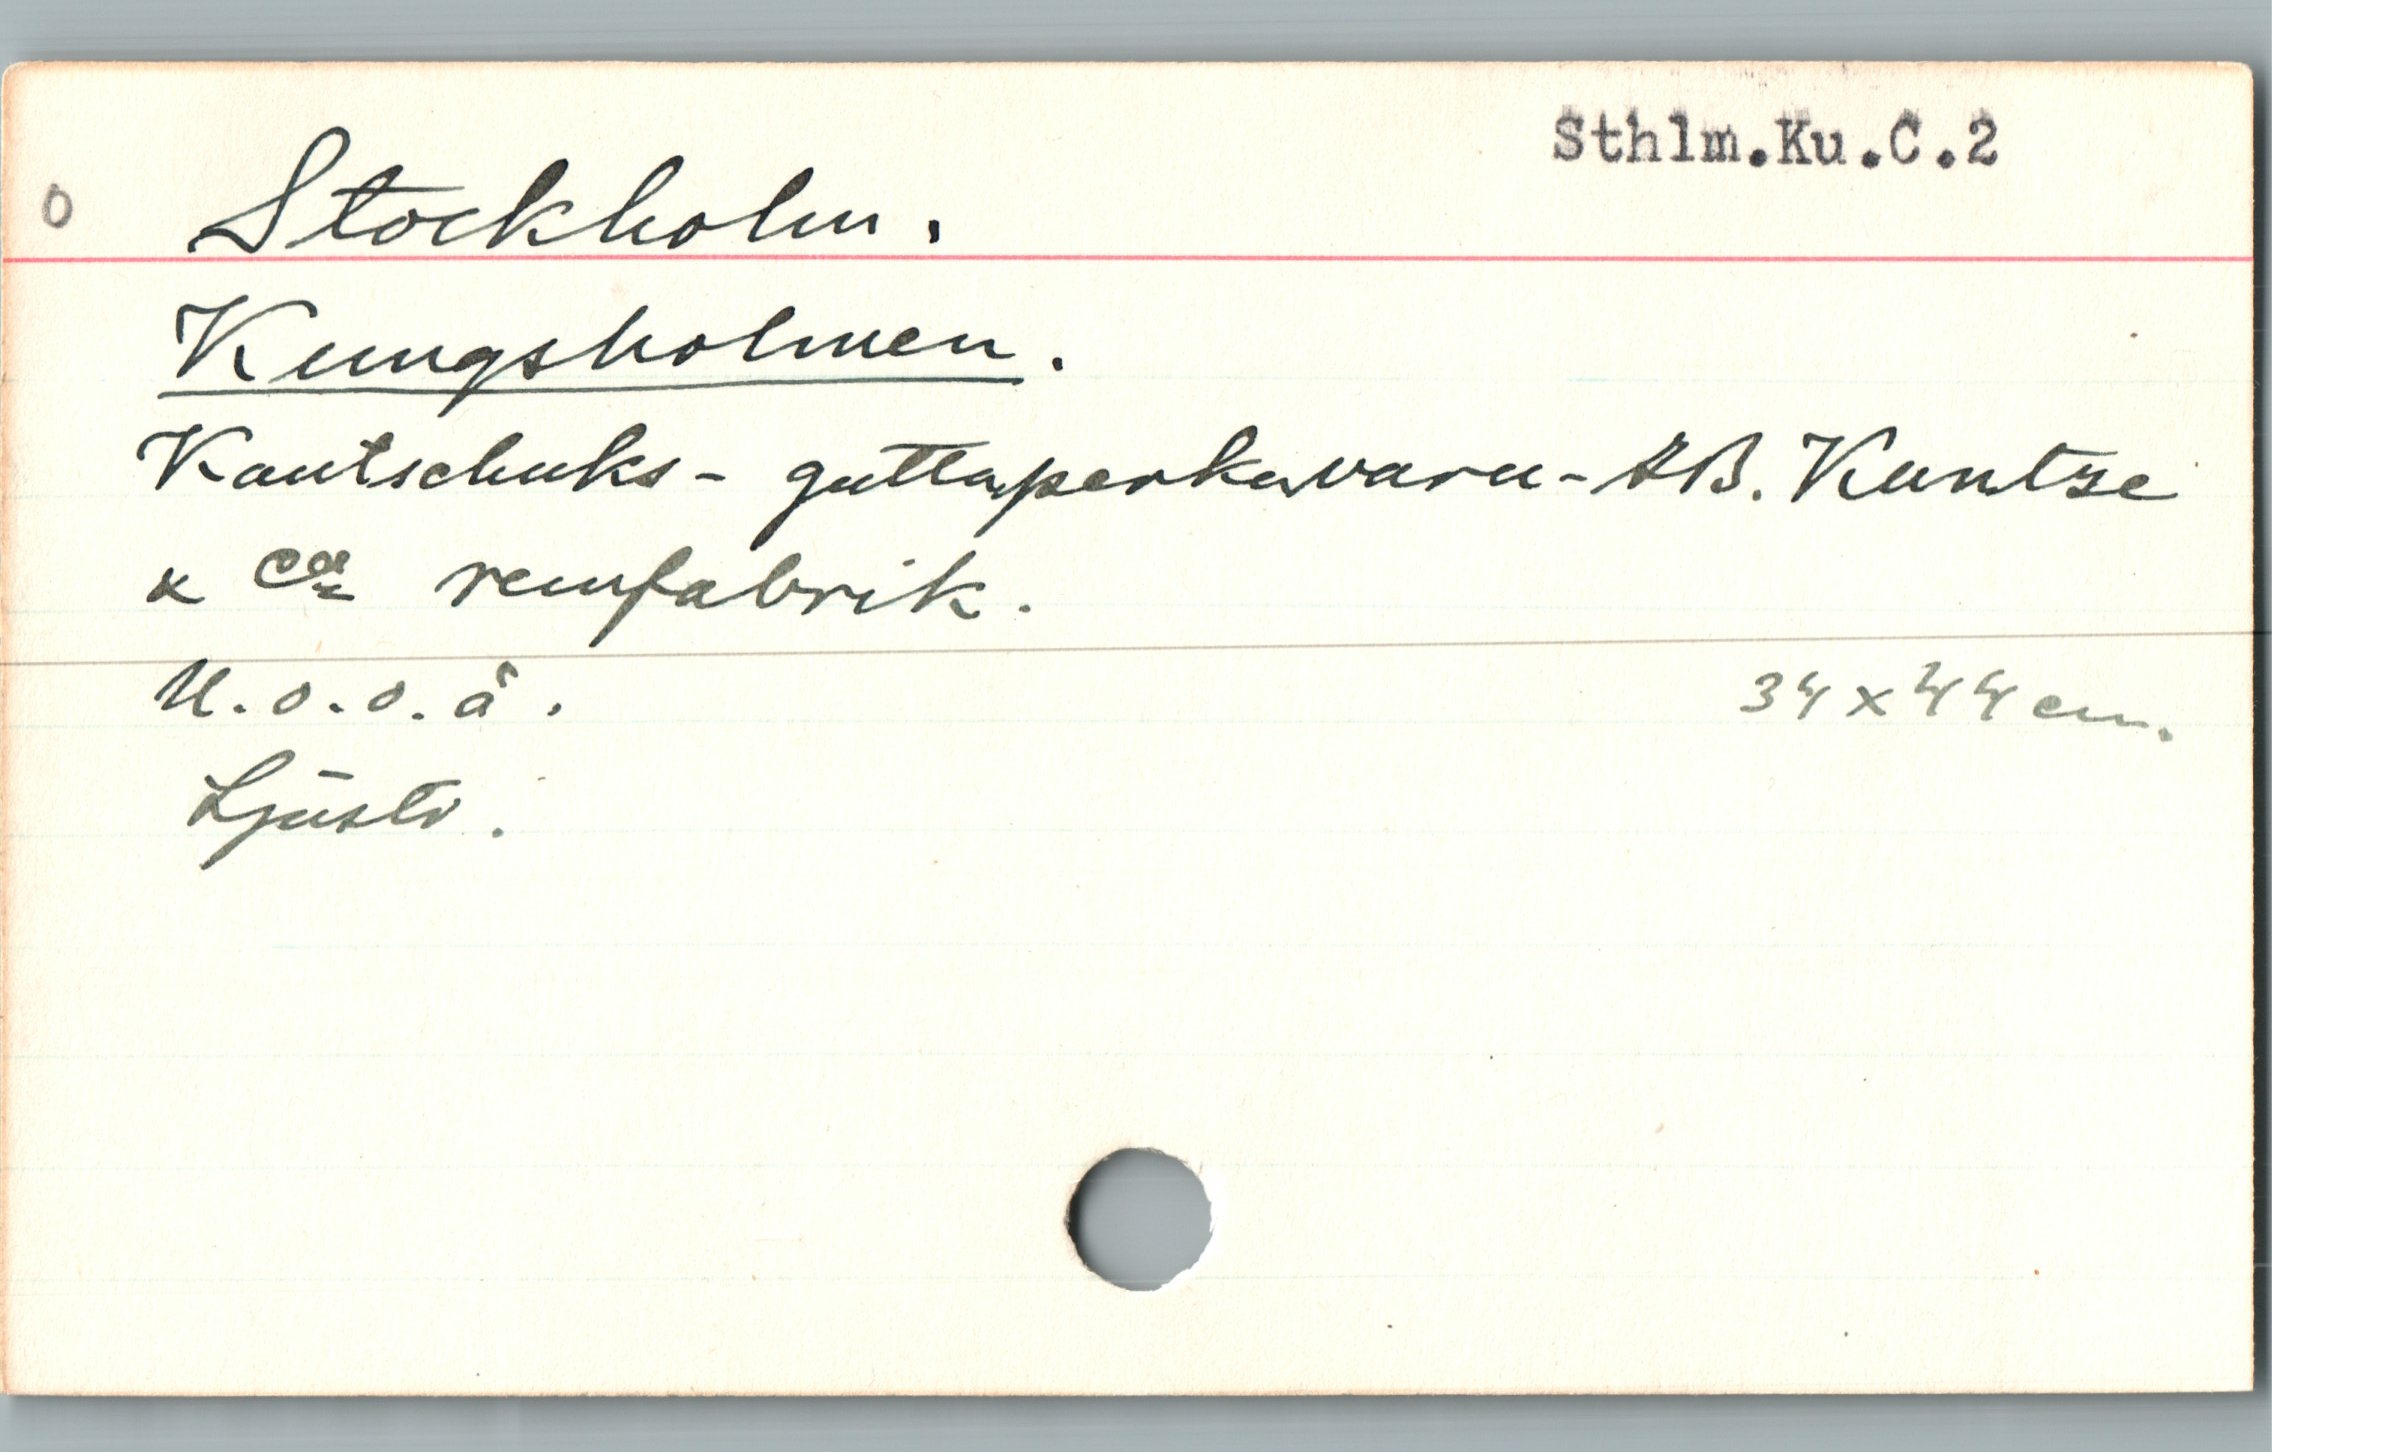 Sthlm.Ku.C.2
O Stockholm.
Kungsholmen.
Kautschuks- guttaperkavaru-AB. Kuntze
& Co remfabrik.
U.o.o.å. 34x44 cm.
Ljustr.